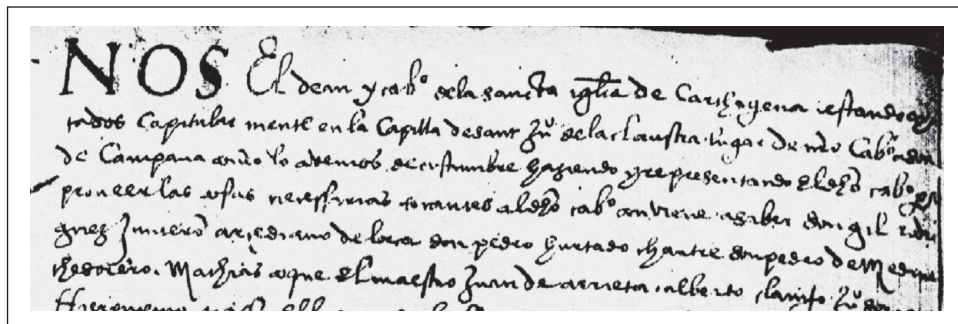 NOS El dean y cabº de la sancta iglia de Carthagena estando
tados Capitular mente en la Capilla de sant Juº de la claustra lugar de nro Cabº
de Campana como lo avemos de costumbre haziendo y representando el dho cabº
proueer las cosas necessarias tocantes al dho cabº conviene a saber don gil
guez Juntero arcediano de lorca don pedro hurtado chantre don pedro de
thesorero. Mathias coque el maestro Juan de arrieta alberto
Hieronymo